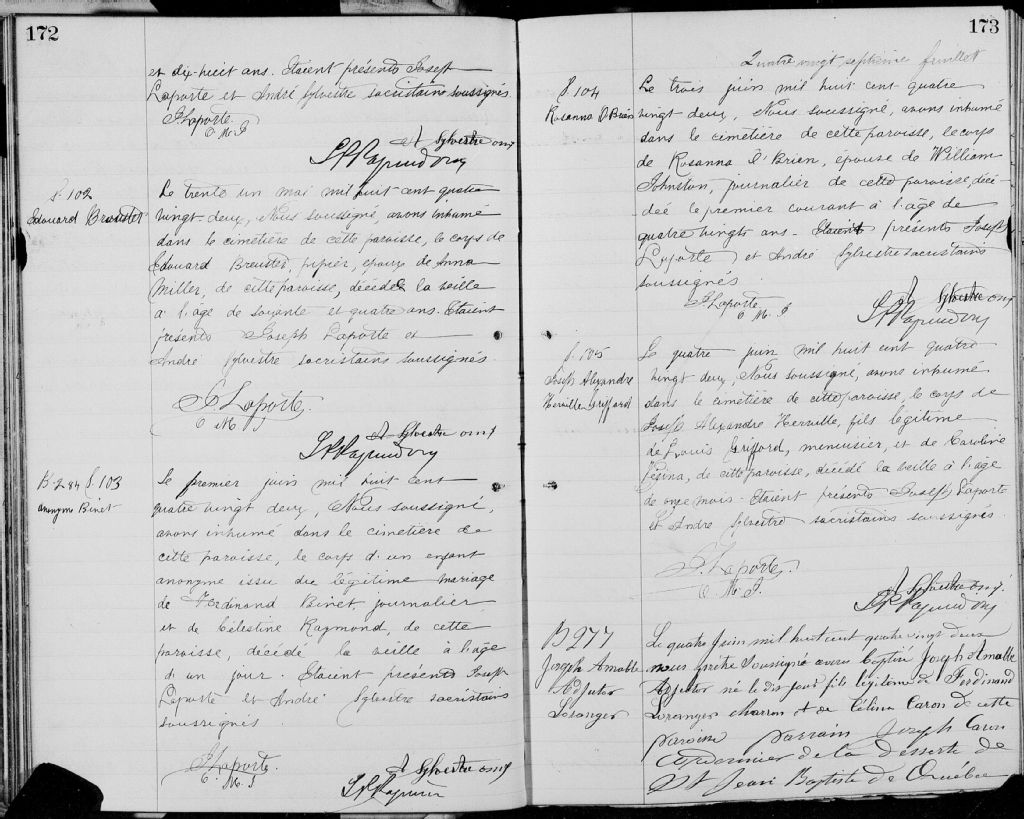 172
et dix-huit ans. Etaient présents Joseph
Laporte et André Sylvestre sacristains soussignés.
J. Laporte
A Sylvestre
S. 102
Edouard Breuster
Le trente un mai mil huit cent quatre
vingt-deux, Nous soussigné, avons inhumé
dans le cimetière de cette paroisse, le corps de
Edouard Breuster, pipier, époux de Anna
Miller, de cette paroisse, décédé la veille
à l'age de soixante et quatre ans. Etaient
présents Joseph Laporte et
André Sylvestre sacristains soussignés.
J. Laporte.
A Sylvestre
B-284 S. 103
anonyme Binet
Le premier juin mil huit cent
quatre vingt deux, Nous soussigné,
avons inhumé dans le cimetière de
cette paroisse, le corps d'un enfant
anonyme issu du légitime mariage
de Ferdinand Binet journalier
et de Célestine Raymond, de cette
paroisse, décédé la veille à l'age
d'un jour. Etaient présents Joseph
Laporte et André Sylvestre sacristains
soussignés.
J. Laporte.
A Sylvestre
173
Quatre vingt septième feuillet
S. 104
Rosanna O'Brien
Le trois juin mil huit cent quatre
vingt deux, Nous soussigné, avons inhumé
dans le cimetière de cette paroisse, le corps
de Rosanna O'Brien, épouse de William
Johnston, journalier de cette paroisse, décé-
dée le premier courant à l'age de
quatre vingts ans. Etaient présents Joseph
Laporte et André Sylvestre sacristains
soussignés.
J. Laporte
A Sylvestre
S. 105
Joseph Alexandre
Herville Griffard
Le quatre juin mil huit cent quatre
vingt deux, Nous soussigné, avons inhumé
dans le cimetière de cette paroisse, le corps de
Joseph Alexandre Herville, fils légitime
de Louis Griffard, menuisier, et de Caroline
Vésina, de cette paroisse, décédé la veille à l'age
de onze mois. Etaient présents Joseph Laporte
et André Sylvestre sacristains soussignés.
J. Laporte.
A Sylvestre
B 277
Joseph Amable
Adjutor
Loranger
Le quatre Juin mil huit cent quatre vingt deux
nous prêtre soussigné avons baptisé Joseph Amable
Adjutor né le dix jour fils légitime de Ferdinand
Loranger charron et de Célina Caron de cette
paroisse parrain Joseph Caron
de la desserte de
St Jean Baptiste de Québec